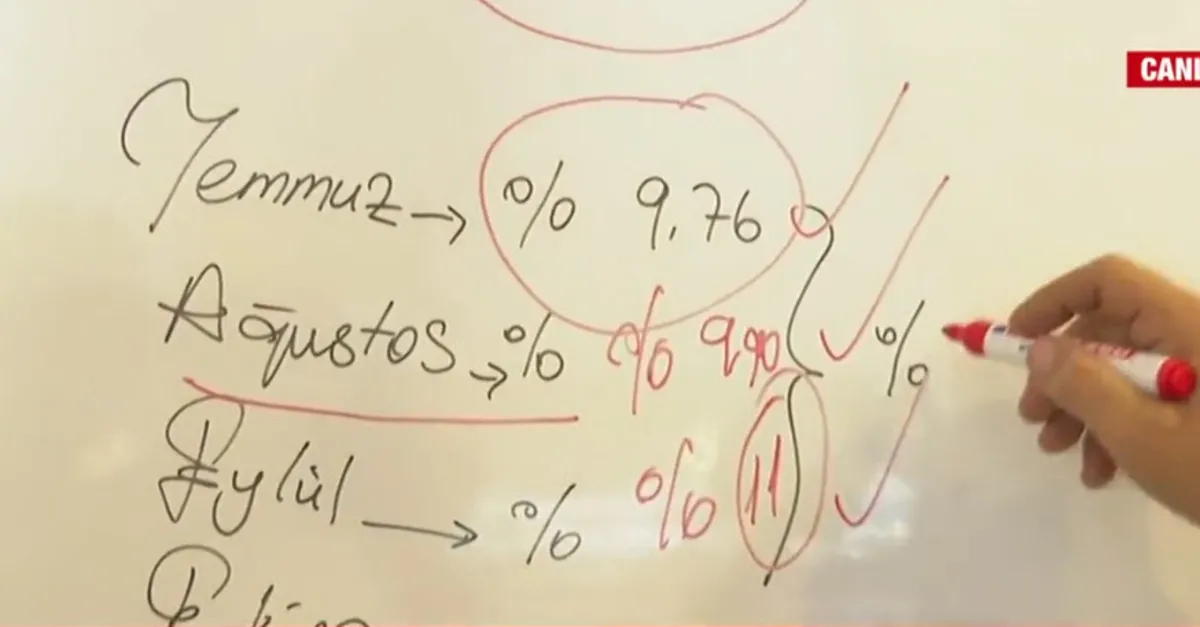 CANL
Temmuz → % 9.76
Ağustos → % % 9,90 %
Eylül → % % 11